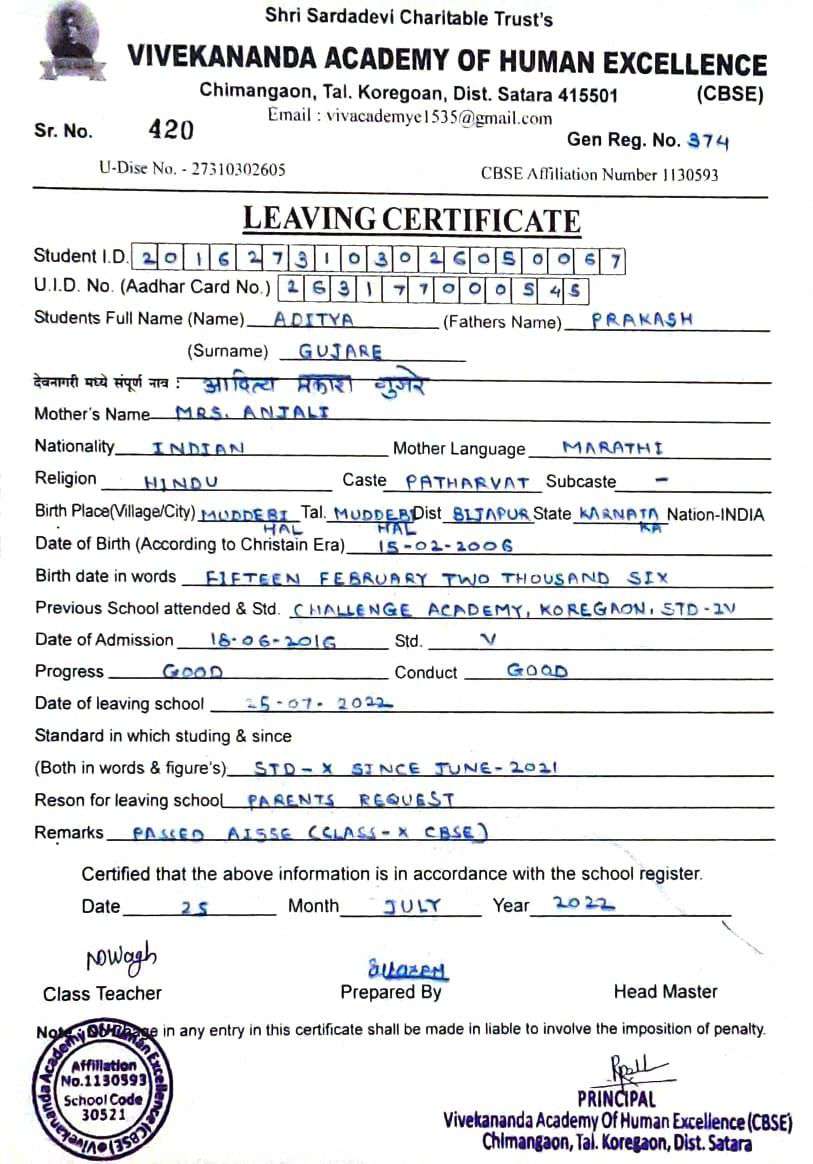 Shri Sardadevi Charitable Trust's
VIVEKANANDA ACADEMY OF HUMAN EXCELLENCE
Chimangaon, Tal. Koregoan, Dist. Satara 415501 (CBSE)
Email : vivacademye1535@gmail.com
Sr. No. 420
Gen Reg. No. 374
U-Dise No. - 27310302605
CBSE Affiliation Number 1130593
LEAVING CERTIFICATE
Student I.D. 2016273103026050067
U.I.D. No. (Aadhar Card No.) 263177000545
Students Full Name (Name) ADITYA (Fathers Name) PRAKASH
(Surname) GUJARE
देवनागरी मध्ये संपूर्ण नाव : आदित्य प्रकाश गुजरे
Mother's Name MRS. ANJALI
Nationality INDIAN Mother Language MARATHI
Religion HINDU Caste PATHARVAT Subcaste -
Birth Place(Village/City) MUDDEBI Tal. MUDDEBI Dist BIJAPUR State KARNATA Nation-INDIA
HAL HAL KA
Date of Birth (According to Christain Era) 15-02-2006
Birth date in words FIFTEEN FEBRUARY TWO THOUSAND SIX
Previous School attended & Std. CHALLENGE ACADEMY, KOREGAON, STD-IV
Date of Admission 18-06-2016 Std. V
Progress GOOD Conduct GOOD
Date of leaving school 25-07-2022
Standard in which studing & since
(Both in words & figure's) STD-X SINCE JUNE-2021
Reson for leaving school PARENTS REQUEST
Remarks PASSED AISSE (CLASS-X CBSE)
Certified that the above information is in accordance with the school register.
Date 25 Month JULY Year 2022
NDWagh
Class Teacher Prepared By Head Master
Note : No in any entry in this certificate shall be made in liable to involve the imposition of penalty.
Vivekananda Academy Of Human Excellence (CBSE)
Affiliation
No.1130593
School Code
30521
PRINCIPAL
Vivekananda Academy Of Human Excellence (CBSE)
Chimangaon, Tal. Koregaon, Dist. Satara